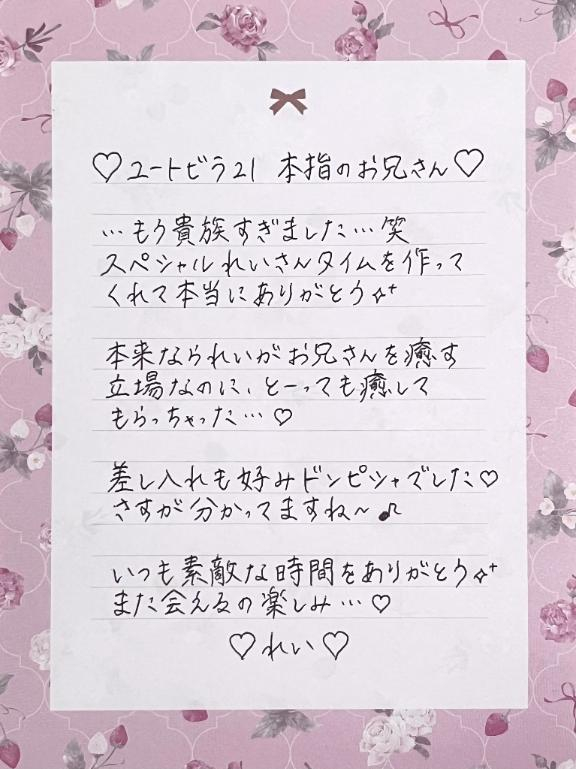 ♡ユートピラ21 本指のお兄さん♡
…もう貴族すぎました…笑
スペシャルれいさんタイムを作って
くれて本当にありがとう✧⁺
本来ならられいがお兄さんを癒す
立場なのに、とーっても癒して
もらっちゃった…♡
差し入れも好みドンピシャズした♡
さすが分かってますね〜♪
いつも素敵な時間をありがとう✧⁺
また会えるの楽しみ…♡
♡れい♡